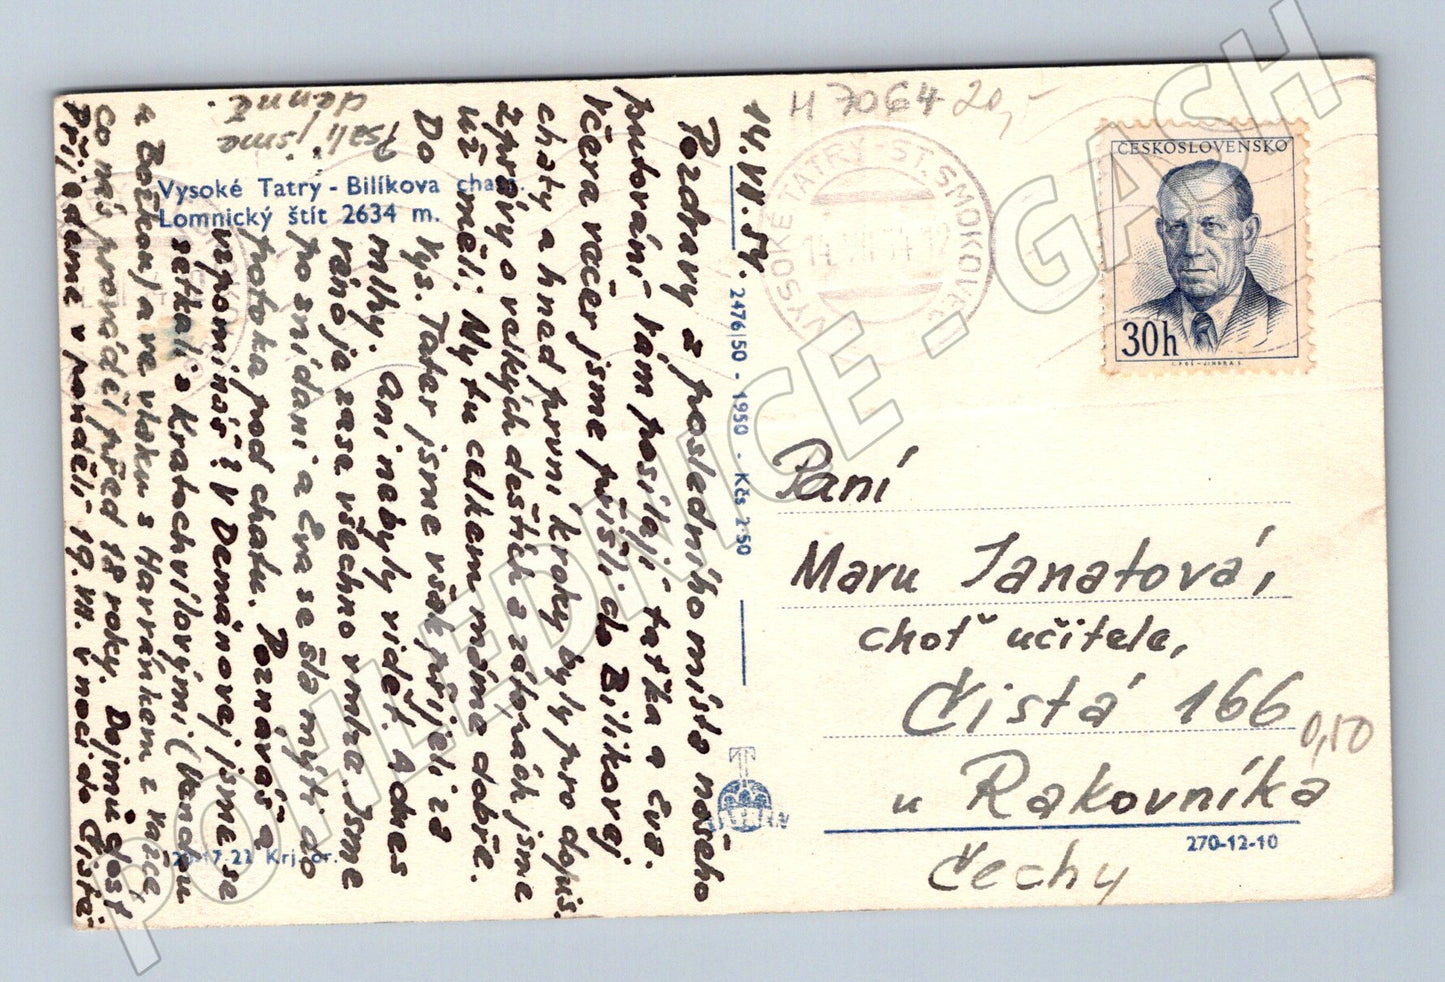 H 7064 20,-
VYSOKÉ TATRY - ST. SMOKOVEC
14.VII.54-12
ČESKOSLOVENSKO
30h
Vysoké Tatry - Bilíkova chata.
Lomnický štít 2634 m.
2476/50 - 1950 - Kčs 2·50
Krj. or.
270-12-10
Paní
Maru Janatová,
choť učitele,
Čistá 166
0,50
u Rakovníka
Čechy
14.VII.54.
Pozdravy z posledního místa našeho
putování Vám posílají taťka a Eva.
Včera večer jsme přišli do Bilíkovej
chaty a hned první kroky byly pro dopis.
Zprávy o velkých deštích a zátopách jsme
už měli. My tu celkem máme dobře.
Do Vys. Tater jsme však přijeli za
mlhy. Ani nebyly vidět. A dnes
ráno je zase všechno v mlze. Jsme
po snídani a Eva se šla mýt do
potoka pod chatu. Poznáváš a
vzpomínáš? V Demänovej jsme se
setkali s Kratochvílovými (Vandou
z Božkova) a ve vlaku s Harráňkem z
Co nás prováděl před 18 roky. Dojmů dost
Přijedeme v pondělí 19.VII. v noci do Čisté
Psali jsme
denně.
POHLEDNICE - GASH